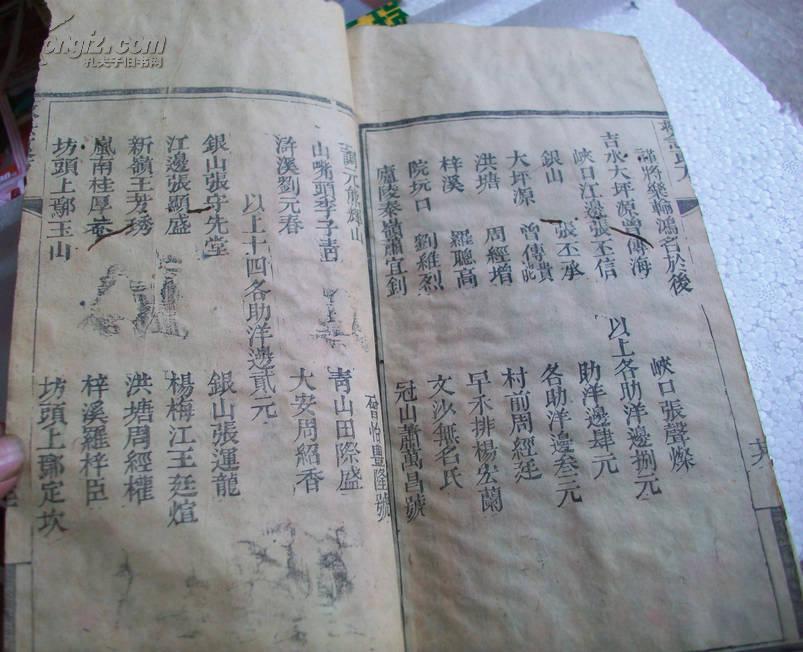 孔夫子旧书网
諸將樂輸鴻名於後
吉水大坪源曾傳海
峽口張聲燦
峽口江邊張丕信
以上各助洋邊捌元
銀山 張丕承
助洋邊肆元
大坪源 曾傳貴
各助洋邊叁元
洪塘 周經增
村前周經廷
梓溪 羅聰高
早禾排楊宏蘭
院坑口 劉維烈
文沙無名氏
廬陵秦嶺蕭宜釗
冠山蕭萬昌號
怡豐隆號
山嘴頭李子青
青山田際盛
滸溪劉元春
大安周紹香
以上十四各助洋邊貳元
銀山張守先堂
銀山張運龍
江邊張顯盛
楊梅江王廷煊
新嶺王芳琇
洪塘周經權
嵐南桂厚
梓溪羅梓臣
坊頭上鄢玉山
坊頭上鄢定坎